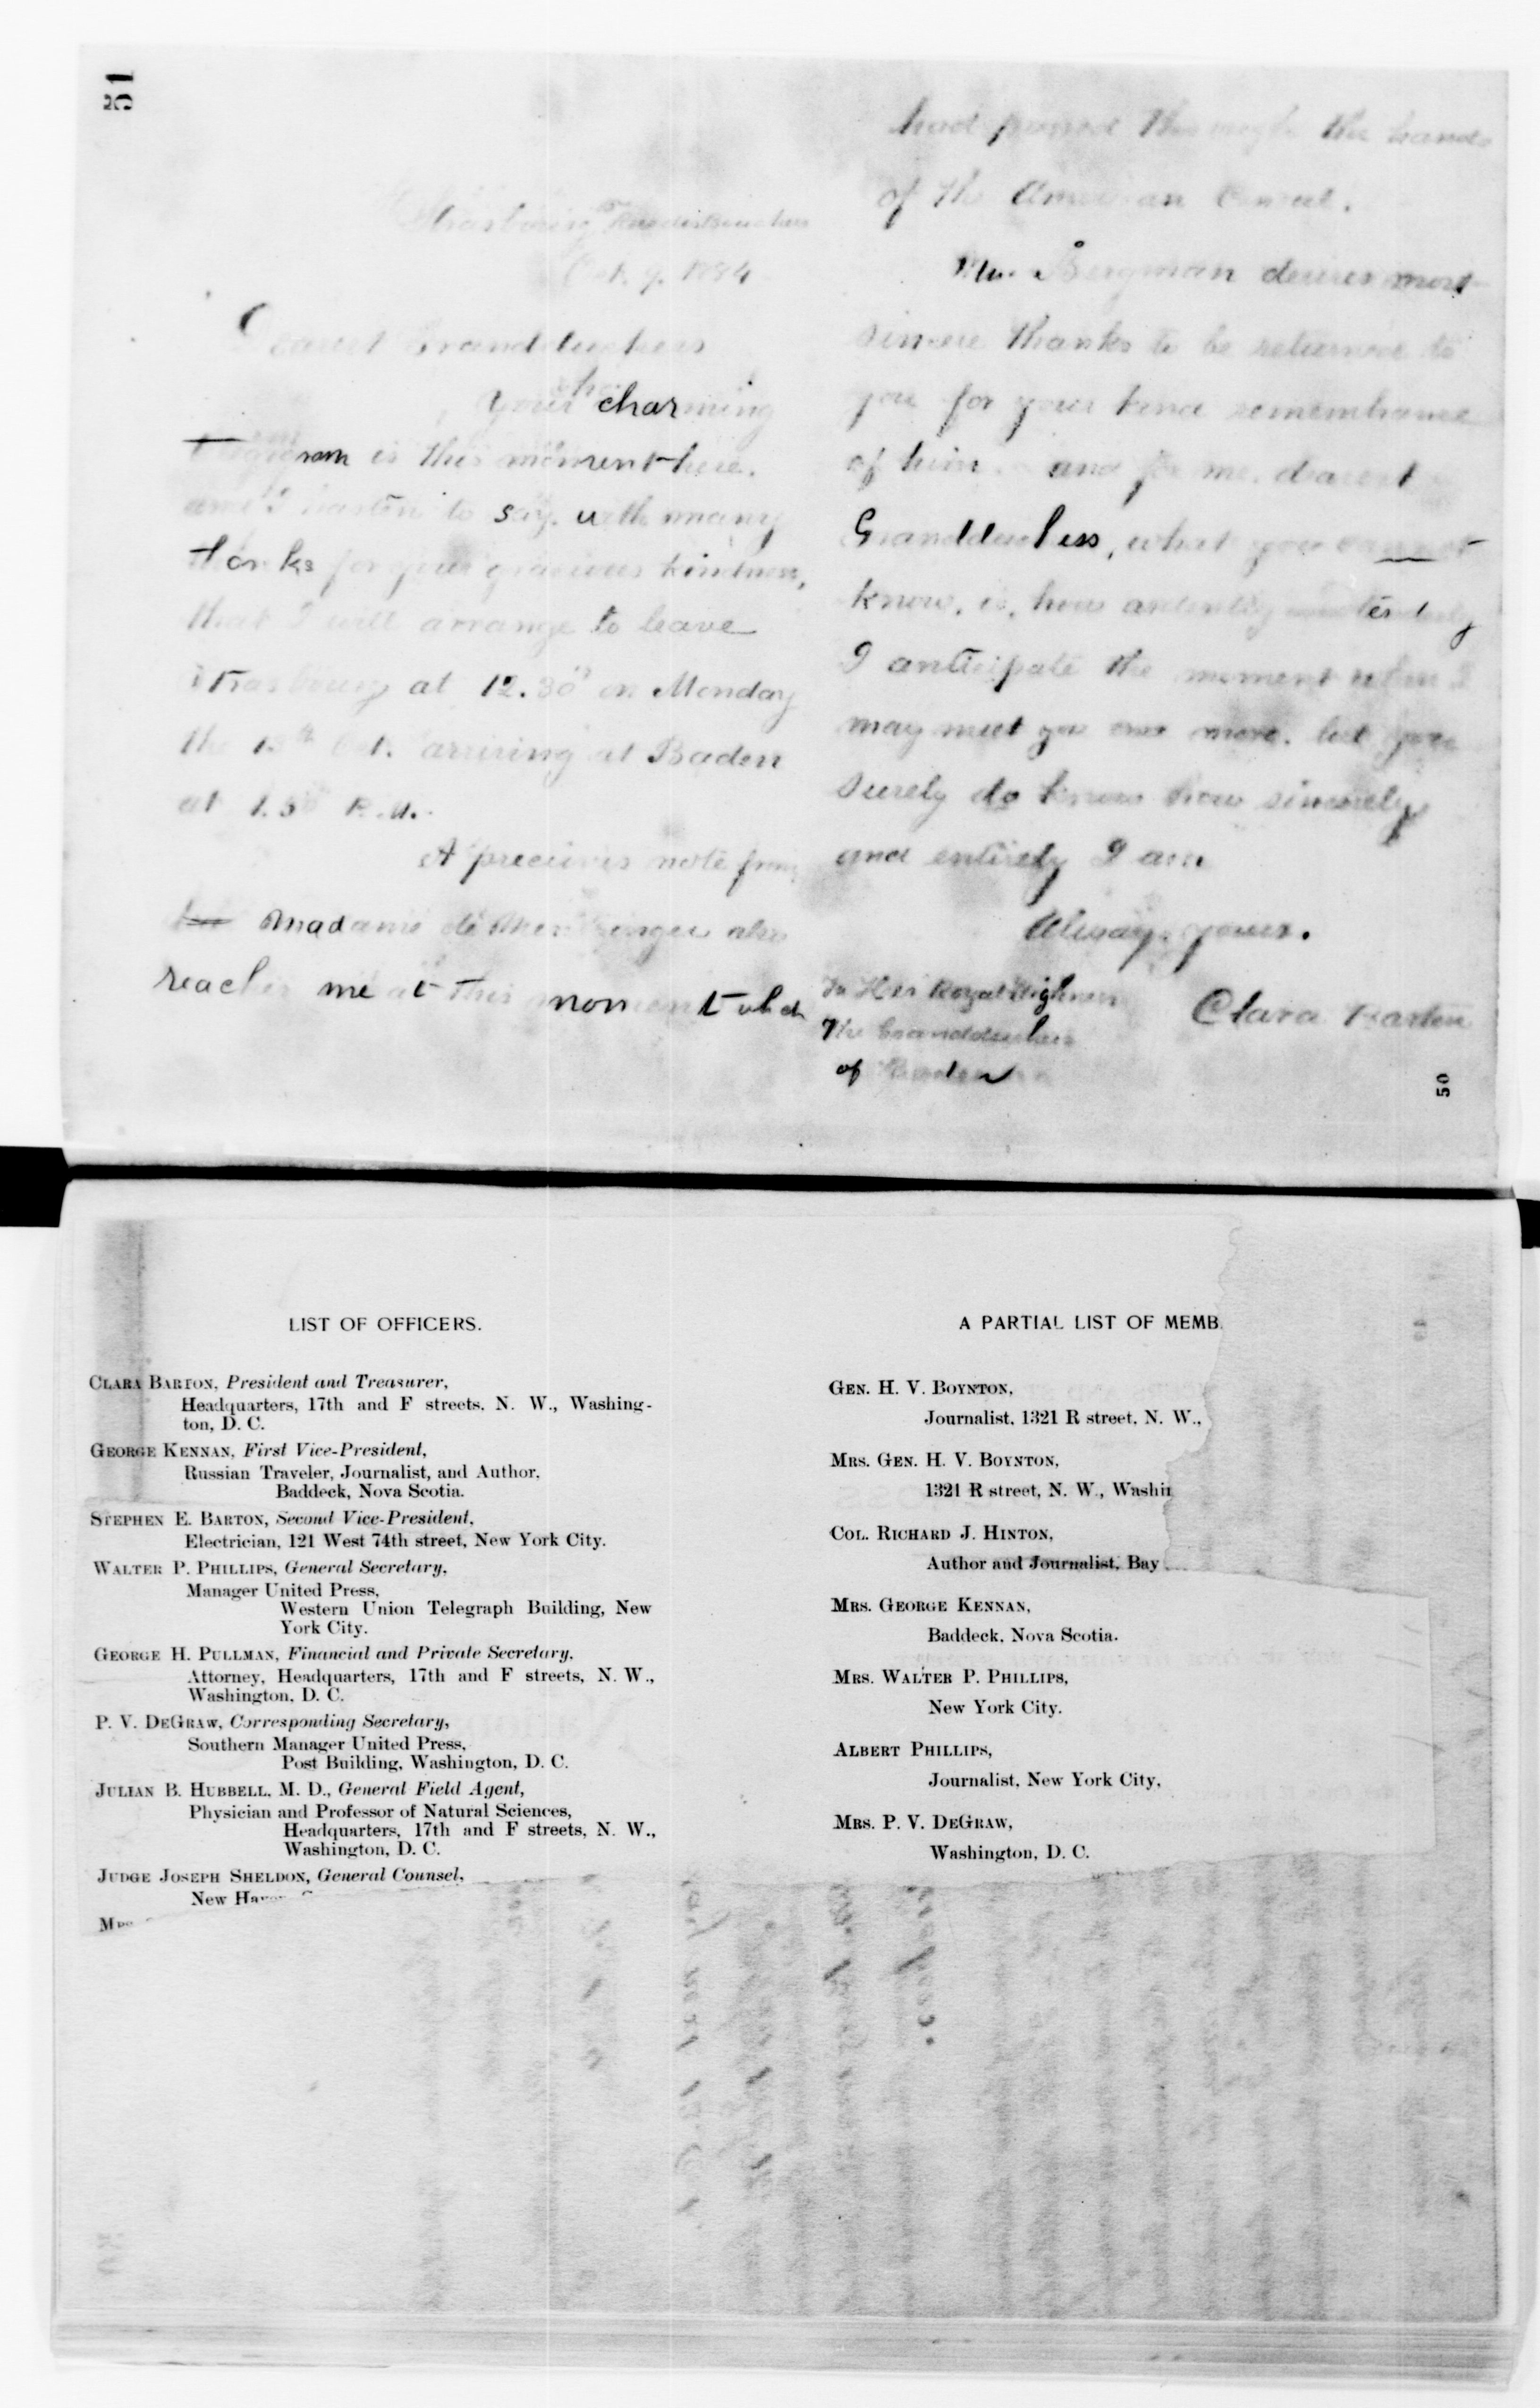 51
Strasbourg
Oct. 9. 1884
Dearest Grandduchess
Your charming
Telegram is this moment here.
and I hasten to say, with many
thanks for your gracious kindness,
that I will arrange to leave
Strasbourg at 12.30 on Monday
the 13th Oct. arriving at Baden
at 1.50 P.M.
A precious note from
Madame also
reaches me at this moment which
had passed through the hands
of the American Consul.
Mr. Bergman desires most
sincere thanks to be returned to
you for your kind remembrance
of him. and for me, dearest
Grandduchess, what you cannot
know, is, how ardently
I anticipate the moment when I
may meet you once more. but you
surely do know how sincerely
and entirely I am
Always yours.
Clara Barton
To Her Royal Highness
The Grandduchess
of Baden
50
LIST OF OFFICERS.
CLARA BARTON, President and Treasurer,
Headquarters, 17th and F streets, N. W., Washing-
ton, D. C.
GEORGE KENNAN, First Vice-President,
Russian Traveler, Journalist, and Author,
Baddeck, Nova Scotia.
STEPHEN E. BARTON, Second Vice-President,
Electrician, 121 West 74th street, New York City.
WALTER P. PHILLIPS, General Secretary,
Manager United Press,
Western Union Telegraph Building, New
York City.
GEORGE H. PULLMAN, Financial and Private Secretary,
Attorney, Headquarters, 17th and F streets, N. W.,
Washington, D. C.
P. V. DEGRAW, Corresponding Secretary,
Southern Manager United Press,
Post Building, Washington, D. C.
JULIAN B. HUBBELL, M. D., General Field Agent,
Physician and Professor of Natural Sciences,
Headquarters, 17th and F streets, N. W.,
Washington, D. C.
JUDGE JOSEPH SHELDON, General Counsel,
New
A PARTIAL LIST OF MEMB
GEN. H. V. BOYNTON,
Journalist, 1321 R street, N. W.,
MRS. GEN. H. V. BOYNTON,
1321 R street, N. W., Washi
COL. RICHARD J. HINTON,
Author and Journalist, Bay
MRS. GEORGE KENNAN,
Baddeck, Nova Scotia.
MRS. WALTER P. PHILLIPS,
New York City.
ALBERT PHILLIPS,
Journalist, New York City,
MRS. P. V. DEGRAW,
Washington, D. C.